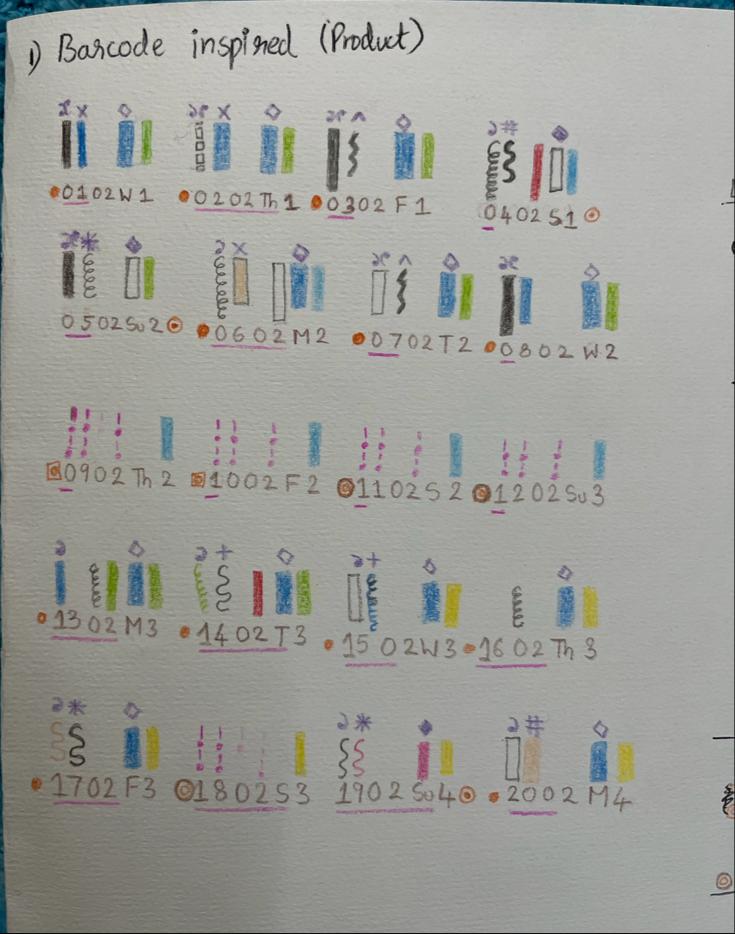 1) Barcode inspired (Product)
0102W1 0202Th1 0302 F1 0402 S1
0502Su2 0602M2 0702T2 0802 W2
0902 Th2 1002 F2 1102S2 1202Su3
1302 M3 1402 T3 1502W3 1602 Th 3
1702 F3 1802S3 1902 Su4 2002 M4